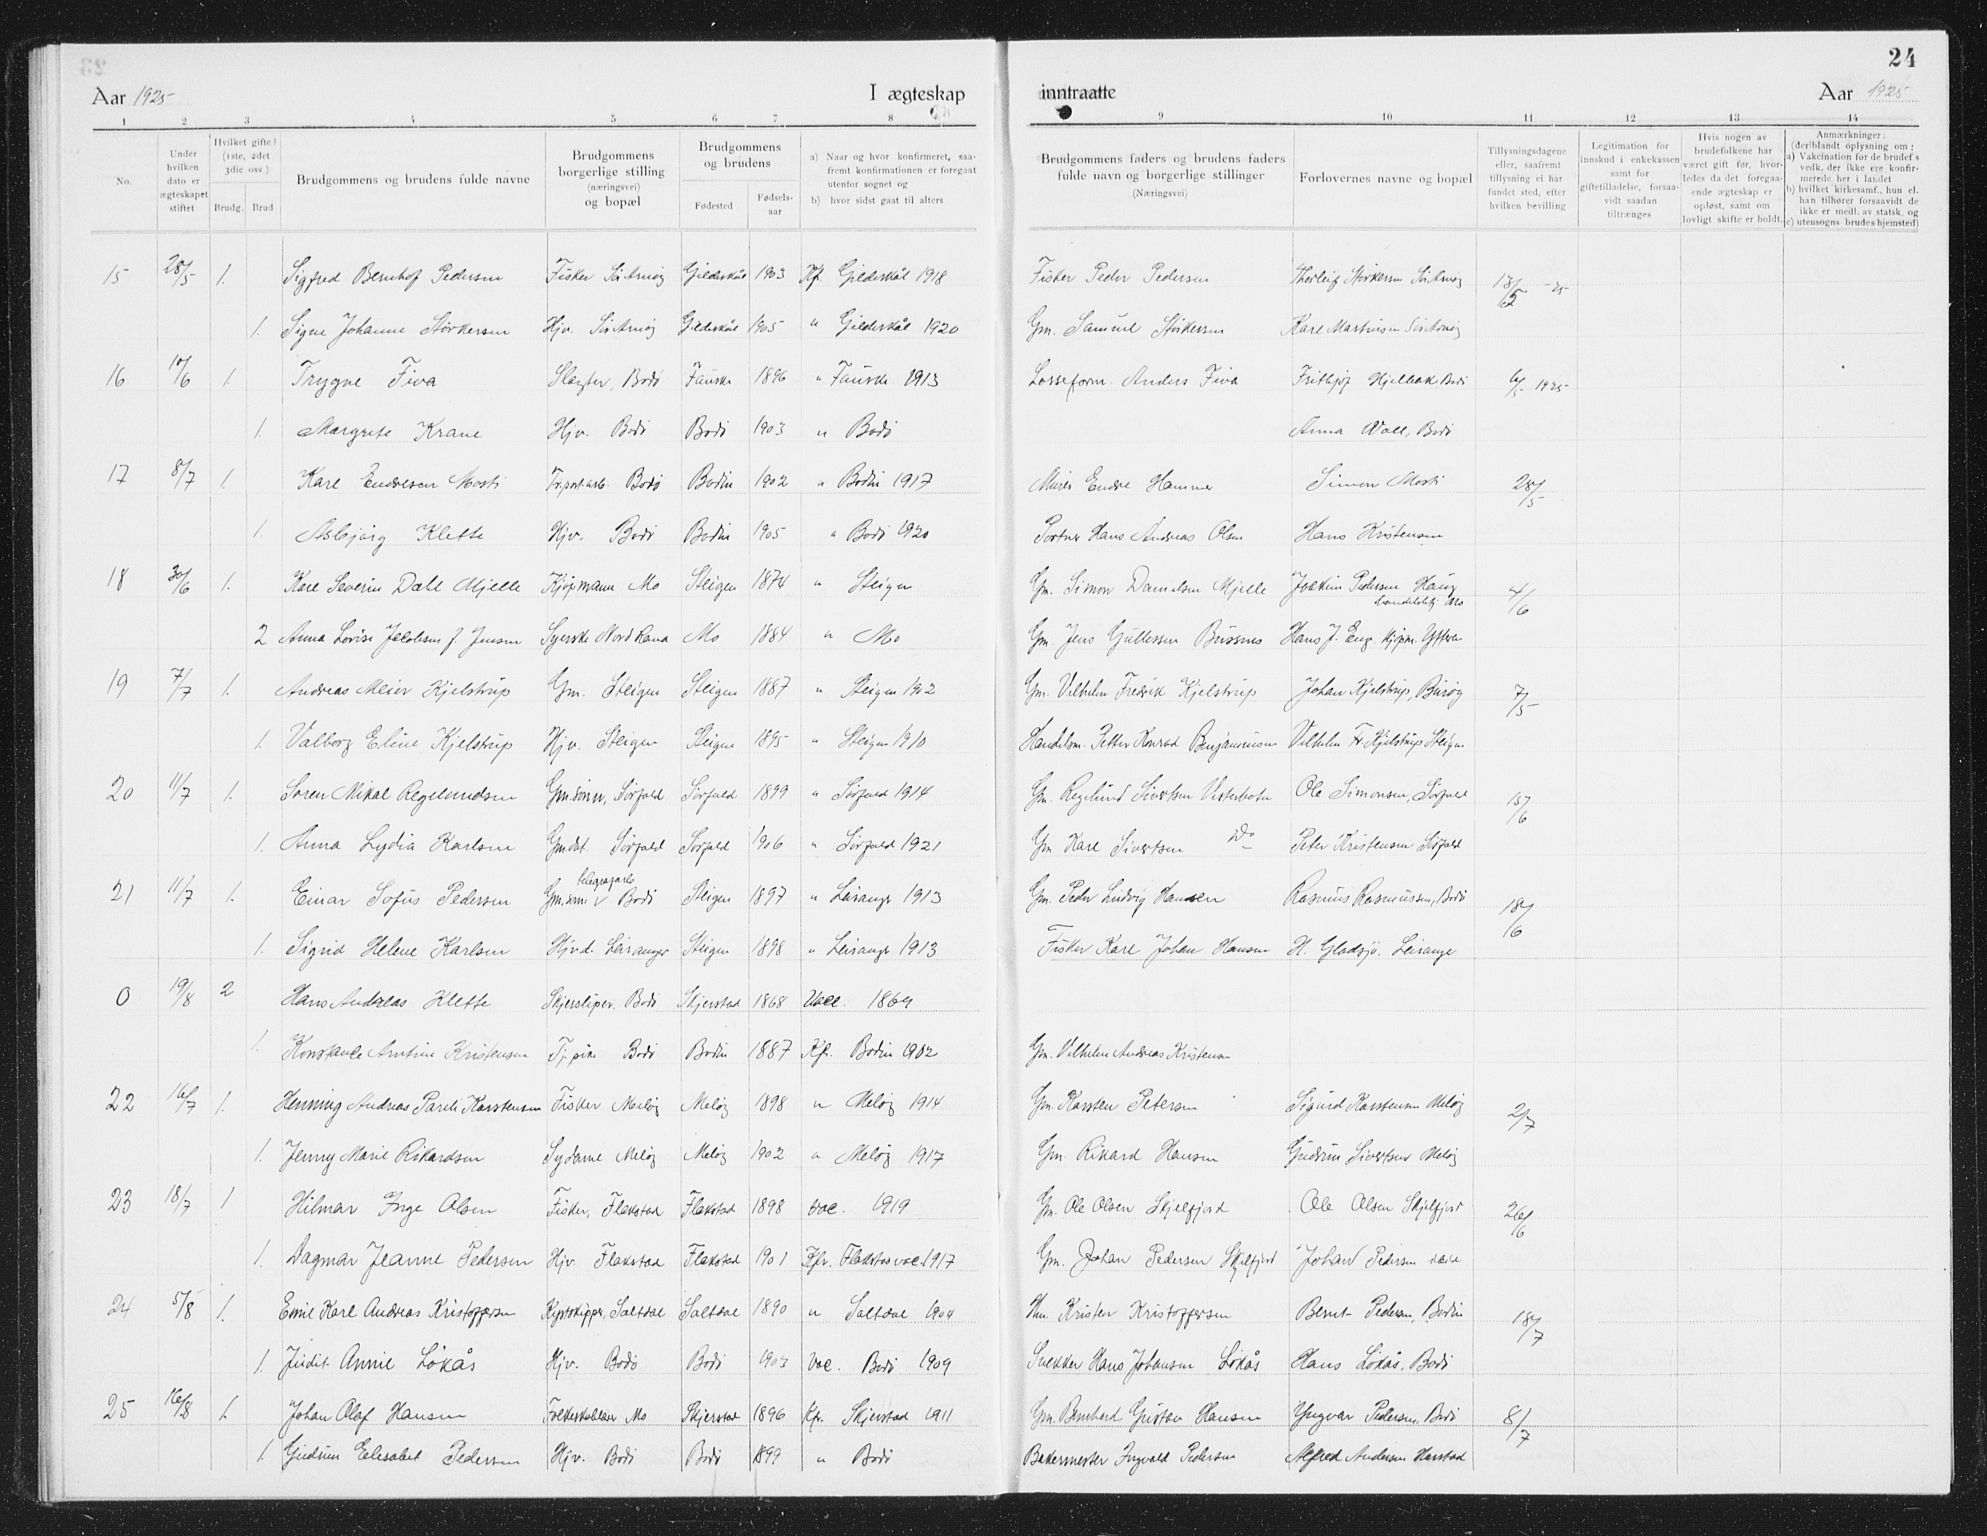 24
Aar 1925 I ægteskap
inntraatte Aar 1925
1 2 3 4 5 6 7 8
9 10 11 12 13 14
No.
Under hvilken dato er ægteskapet stiftet
Hvilket gifte? (1ste, 2det 3die osv.)
Brudg. Brud
Brudgommens og brudens fulde navne
Brudgommens borgerlige stilling (næringsvei) og bopæl
Brudgommens og brudens
Fødested Fødsels-aar
a) Naar og hvor konfirmeret, saafremt konfirmationen er foregaat utenfor sognet og
b) hvor sidst gaat til alters
Brudgommens faders og brudens faders fulde navn og borgerlige stillinger
(Næringsvei)
Forlovernes navne og bopæl
Tillysningsdagene eller, saafremt tillysning ei har fundet sted, efter hvilken bevilling
Legitimation for innskud i enkekassen samt for giftetilladelse, forsaavidt saadan tiltrænges
Hvis nogen av brudefolkene har været gift før, hvorledes da det foregaaende ægteskap er opløst, samt om lovligt skifte er holdt.
Anmærkninger: (deriblandt oplysning om:
a) Vakcination for de brudef.s vedk. der ikke ere konfirmerede her i landet
b) hvilket kirkesamf., hun el. han tilhører forsaavidt de ikke er medl. av statsk. og
c) utensogns brudes hjemsted)
15 28/5 1. Sigfred Bernhof Pedersen Fisker Sör Arnöy Gildeskål 1903 Kf. Gildeskål 1918 Fisker Peder Pedersen Thorleif Störkersen Sör Arnöy 13/5 -25
1. Signe Johanne Störkersen Hjv. Sör Arnöy Gildeskål 1905 " Gildeskål 1920 Gm. Samuel Störkersen Karl Martinsen Sör Arnöy
16 10/6 1. Trygve Fiva Slagter, Bodö Fauske 1896 " Fauske 1913 Losseform. Anders Fiva Fritjof Bodö 6/5 1925
1. Margrete Krane Hjv. Bodö Bodö 1903 " Bodö Anna Wall, Bodö
17 8/7 1. Karl Endresen Mosti Bodö Bodin 1902 " Bodin 1917 Murer Endre Hammer Simon Mosti 28/5
1. Asbjörg Klette Hjv. Bodö Bodin 1905 " Bodö 1920 Portner Hans Andreas Olsen Hans Kristensen
18 30/6 1. Karl Severin Dahl Mjelle Kjöpmann Mo Steigen 1874 " Steigen Gm. Simon Danielsen Mjelle Joakim Pedersen Haug Mo 4/6
2 Anna Lovise Jacobsen f. Jensen Syerske Nord Rana Mo 1884 " Mo Gm. Jens Gullessen Bussnes Hans J. Eng. kjöpm. Ytteren
19 7/7 1. Andreas Meier Kjelstrup Gm. Steigen Steigen 1887 " Steigen 1902 Gm. Vilhelm Fredrik Kjelstrup Johan Kjelstrup, 7/5
1. Valborg Eline Kjelstrup Hjv. Steigen Steigen 1895 " Steigen 1910 Handelsm. Petter Konrad Benjaminsen Vilhelm Fr. Kjelstrup Steigen
20 11/7 1. Sören Mikal Regelundsen Gm.sönn, Sörfold Sörfold 1899 " Sörfold 1914 Gm. Regelund Sivertsen Vesterbotn Ole Simonsen, Sörfold 15/6
1. Anna Lydia Karlsen Gm.dat. Sörfold Sörfold 1906 " Sörfold 1921 Gm Karl Sivertsen Do Peter Kristensen Sörfold
21 11/7 1. Einar Sofus Pedersen Gm.sönn telegrafarb. Bodö Steigen 1897 " Leiranger 1913 Gm. Peder Ludvig Hansen Rasmus Rasmussen, Bodö 18/6
1. Sigrid Helene Karlsen Hjvd. Leiranger Steigen 1898 " Leiranger 1913 Fisker Karl Johan Hansen H. Gladsjö. Leirange
0 19/8 2 Hans Andreas Klette Skjersliper. Bodö Skjerstad 1868 Vacc. 1869
1. Konstance Arntine Kristensen Tj.pike Bodö Bodin 1887 Kfr. Bodin 1902 Gm. Vilhelm Andreas Kristensen
22 16/7 1. Henning Andreas Pareli Karstensen Fisker Melöy Melöy 1898 " Melöy 1914 Gm Karsten Petersen Sigurd Karstensen Melöy 2/7
1. Jenny Marie Rikardsen Sydame Melöy Melöy 1902 " Melöy 1917 Gm. Rikard Hansen Gudrun Sivertsen Melöy
23 18/7 1 Hilmar Inge Olsen Fisker, Flakstad Flakstad 1898 vac. 1919 Gm. Ole Olsen Skjelfjord Ole Olsen Skjelfjord 26/6
1. Dagmar Jeanne Pedersen Hjv. Flakstad Flakstad 1901 Kfr. Flakstad vac. 1917 Gm. Johan Pedersen Skjelfjord Johan Pedersen
24 5/8 1. Emil Karl Andreas Kristoffersen Saltdal Saltdal 1890 " Saltdal 1904 Kristen Kristoffersen Bernt Pedersen, Bodin 18/7
1. Judit Annie Lökås Hjv. Bodö Bodö 1903 Vac. Bodö 1909 Snekker Hans Johansen Lökås Hans Lökås, Bodö
25 16/8 1. Johan Olaf Hansen Folkeskolelær Mo Skjerstad 1896 Kf. Skjerstad 1911 Gm. Bernhard Gustav Hansen Yngvar Pedersen, Bodö 8/7
1. Gudrun Elisabet Pedersen Hjv. Bodö Bodö 1899 " Bodö Bakermester Ingvald Pedersen Alfred Andersen Harstad